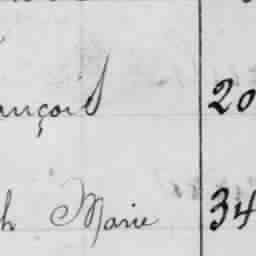 ançois 20
h Marie 34